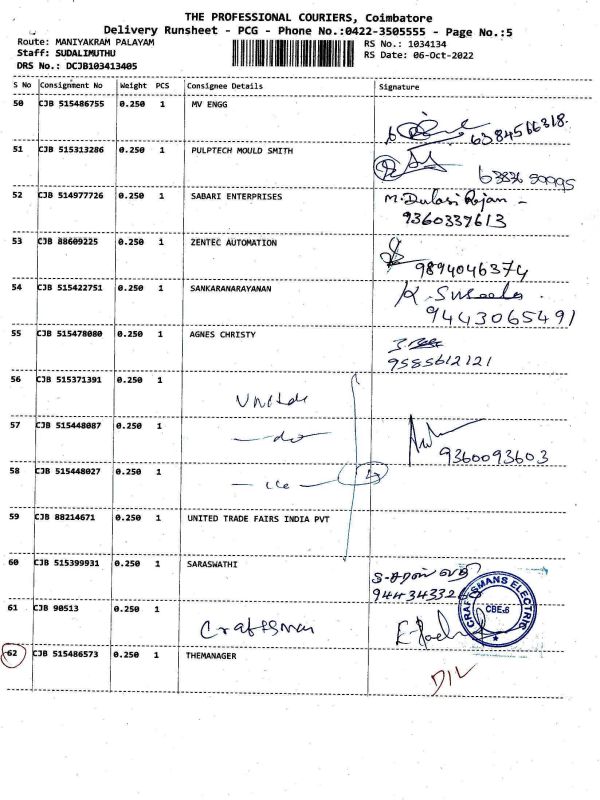 THE PROFESSIONAL COURIERS, Coimbatore
Delivery Runsheet - PCG - Phone No.:0422-3505555 - Page No.:5
Route: MANIYAKRAM PALAYAM
Staff: SUDALIMUTHU
DRS No.: DCJB103413405
RS No.: 1034134
RS Date: 06-Oct-2022
S No Consignment No Weight PCS Consignee Details Signature
50 CJB 515486755 0.250 1 MV ENGG
6384566318.
51 CJB 515313286 0.250 1 PULPTECH MOULD SMITH
52 CJB 514977726 0.250 1 SABARI ENTERPRISES M.Dulasi Rajan -
9360337613
53 CJB 88609225 0.250 1 ZENTEC AUTOMATION
9894046374
54 CJB 515422751 0.250 1 SANKARANARAYANAN K. Suseela
9443065491
55 CJB 515478080 0.250 1 AGNES CHRISTY
9585612121
56 CJB 515371391 0.250 1
United
57 CJB 515448087 0.250 1
— do —
9360093603
58 CJB 515448027 0.250 1
59 CJB 88214671 0.250 1 UNITED TRADE FAIRS INDIA PVT
60 CJB 515399931 0.250 1 SARASWATHI
61 CJB 90513 0.250 1
Craftsman
CRAFTSMANS ELECTRIC
CBE-6
62 CJB 515486573 0.250 1 THEMANAGER
D/L